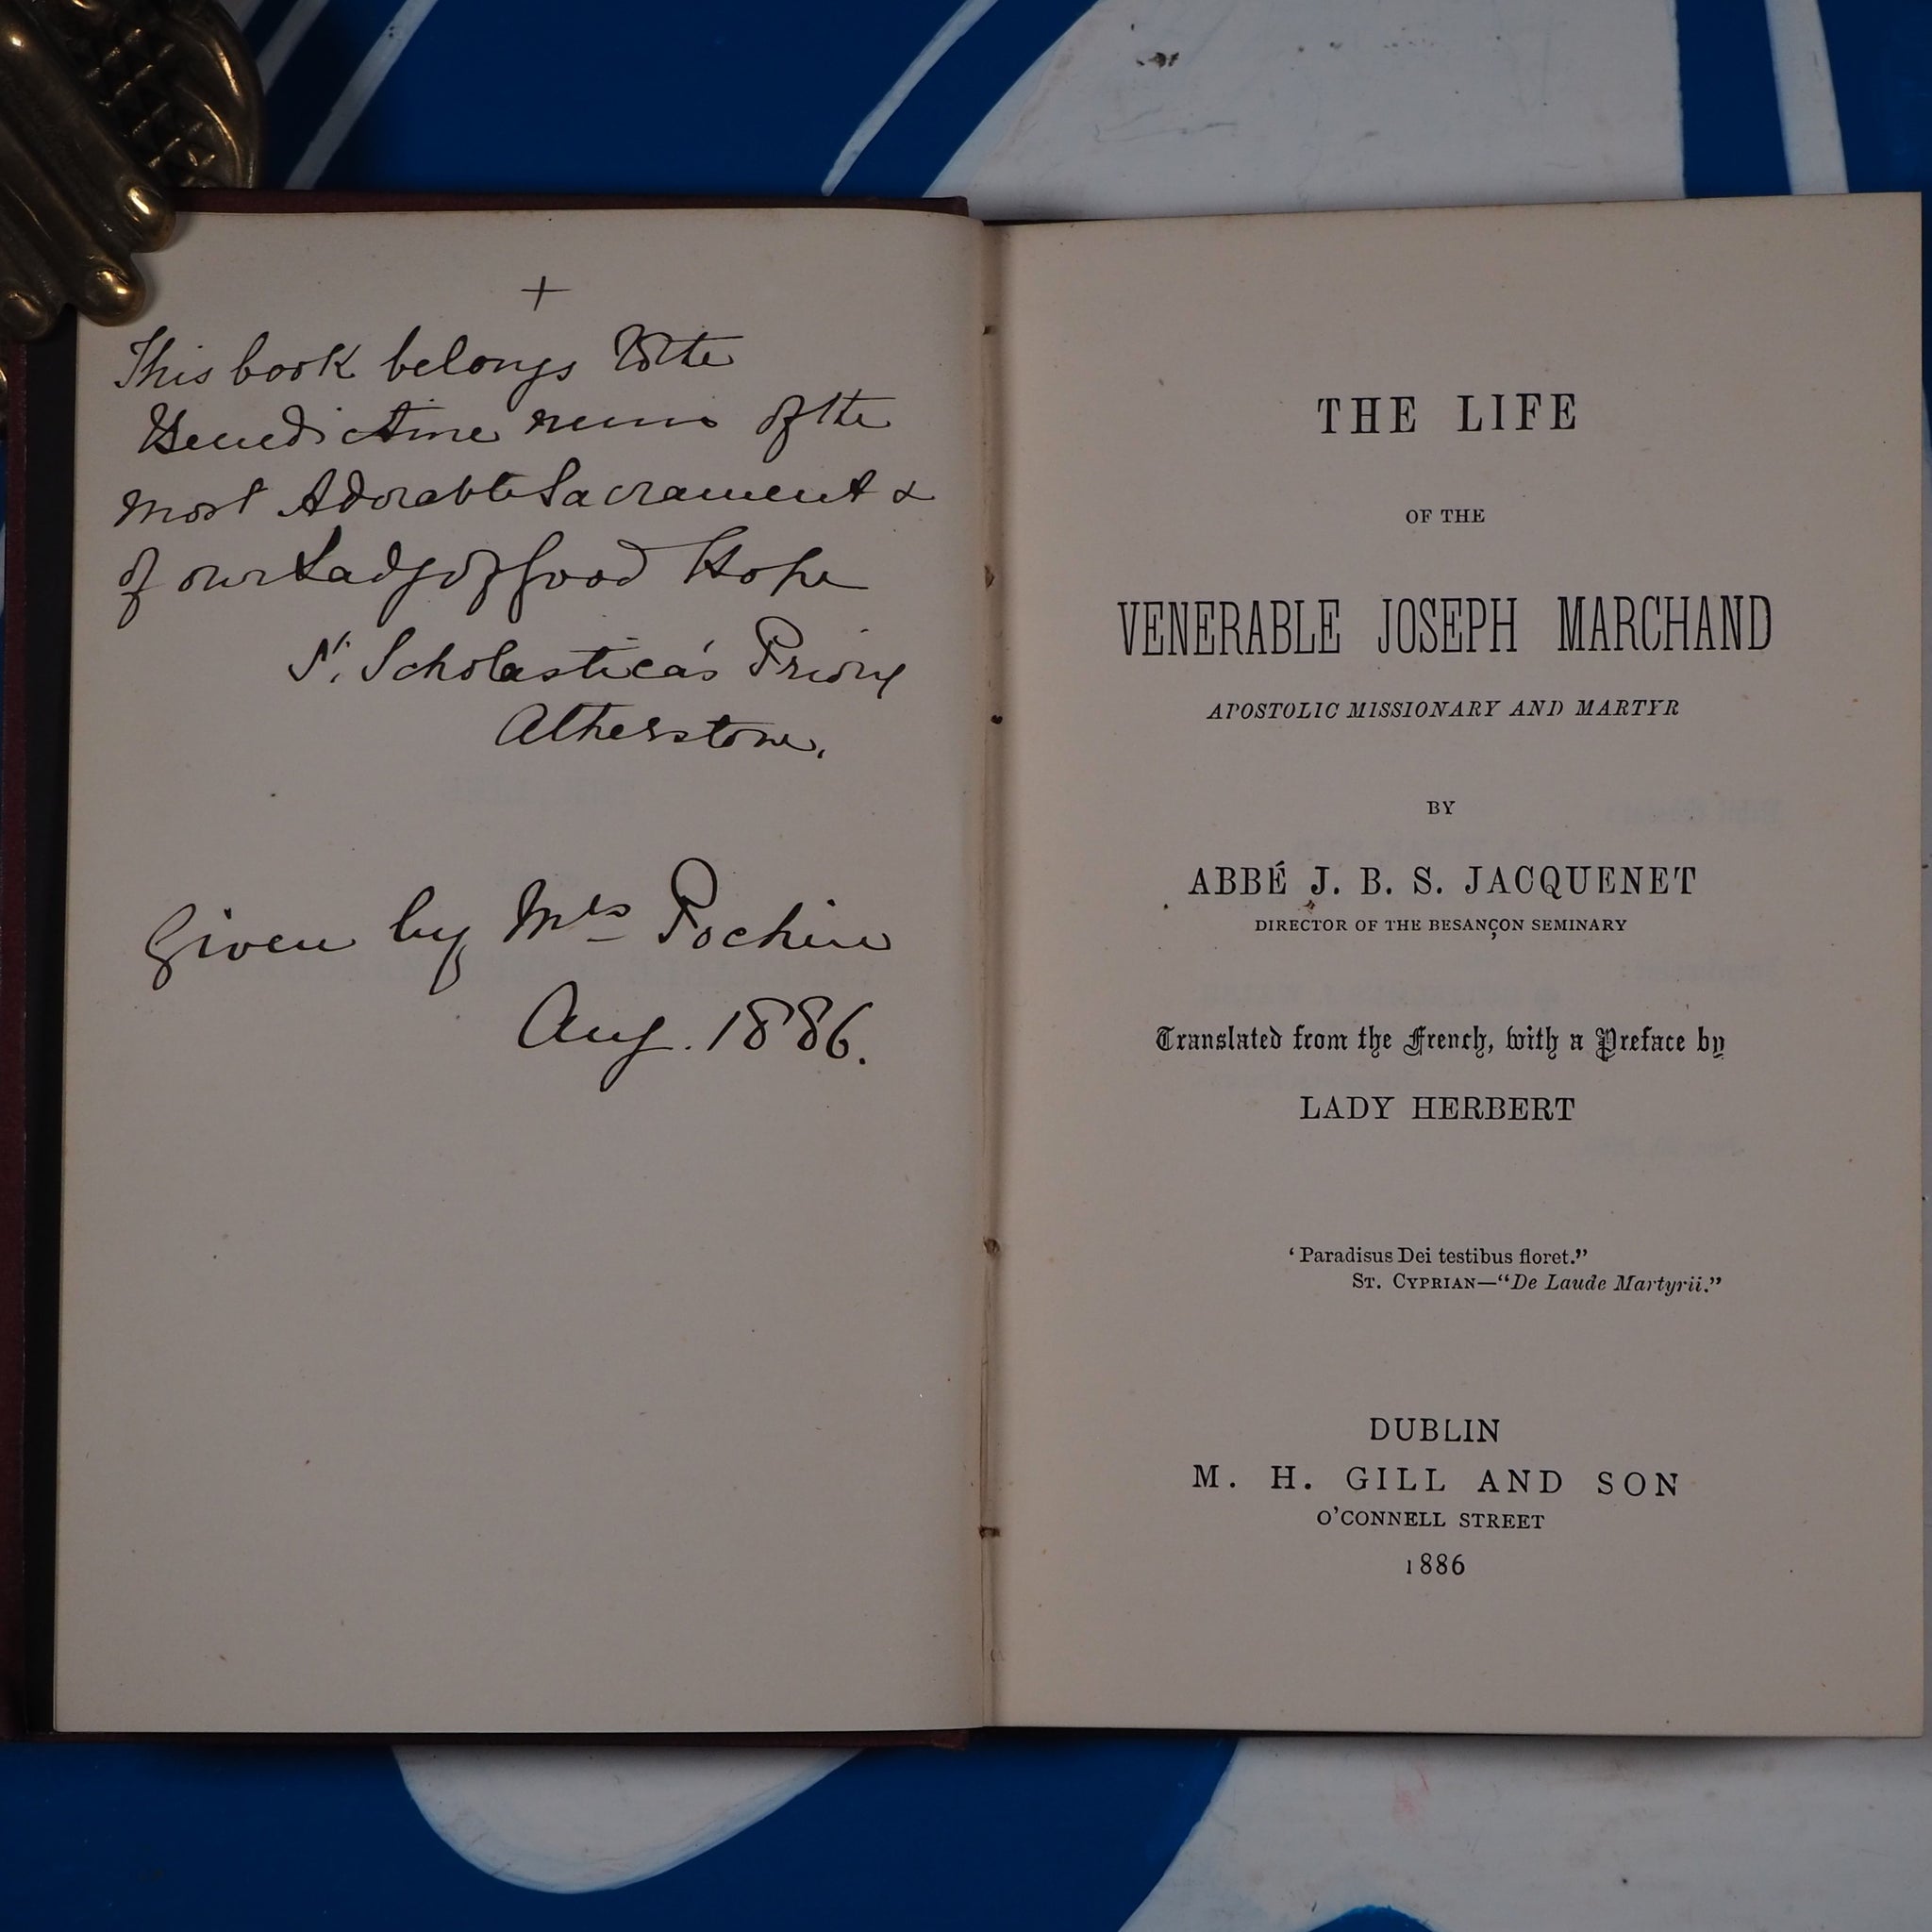 +
This book belongs to the
Benedictine nuns of the
Most Adorable Sacrament &
of our Lady of Good Hope
St. Scholastica's Priory
Atherstone.
Given by Mrs Pochin
Aug. 1886.
THE LIFE
OF THE
VENERABLE JOSEPH MARCHAND
APOSTOLIC MISSIONARY AND MARTYR
BY
ABBÉ J. B. S. JACQUENET
DIRECTOR OF THE BESANÇON SEMINARY
Translated from the French, with a Preface by
LADY HERBERT
‘Paradisus Dei testibus floret.”
ST. CYPRIAN—“De Laude Martyrii.”
DUBLIN
M. H. GILL AND SON
O’CONNELL STREET
1886